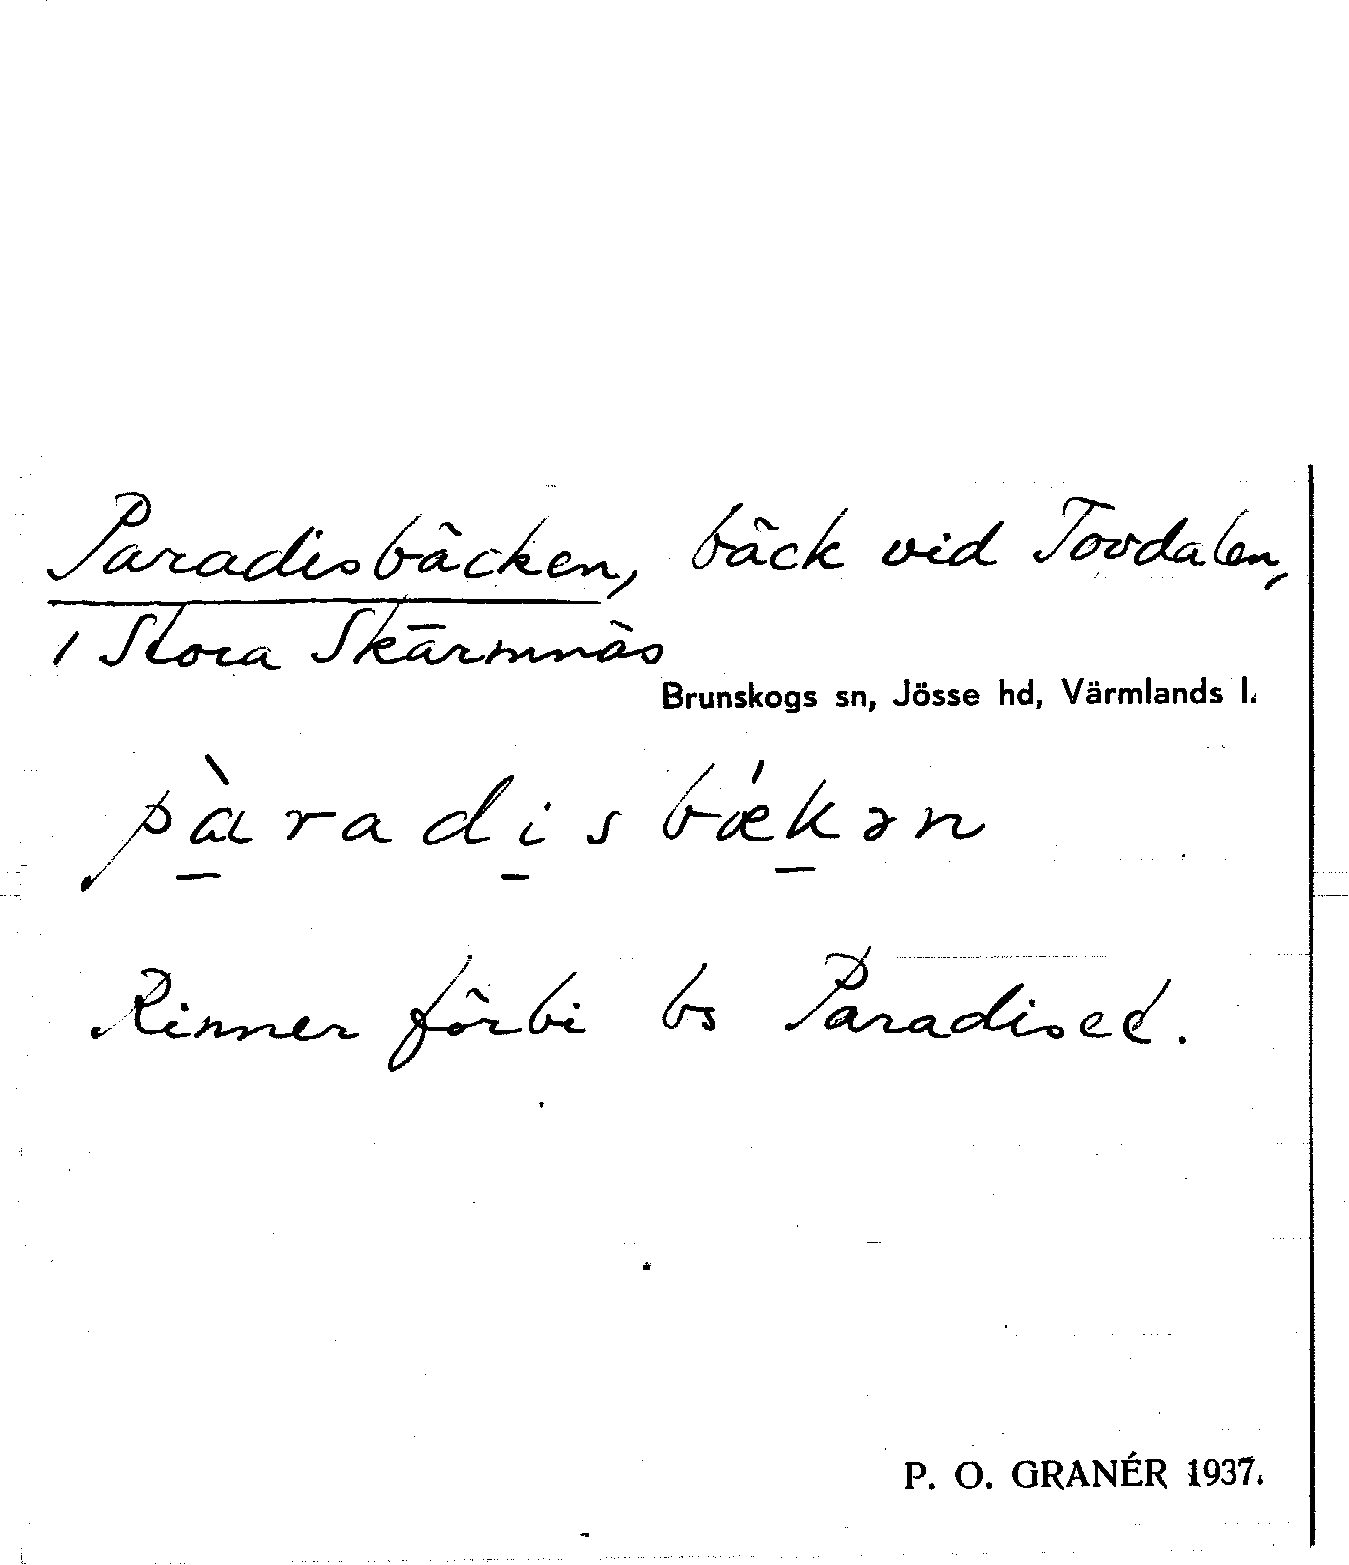 Paradisbäcken, bäck vid Tovdalen,
i Stora Skärmnäs
Brunskogs sn, Jösse hd, Värmlands l.
pàradisbǽkən
Rinner förbi bs Paradiset.
P. O. GRANÉR 1937.